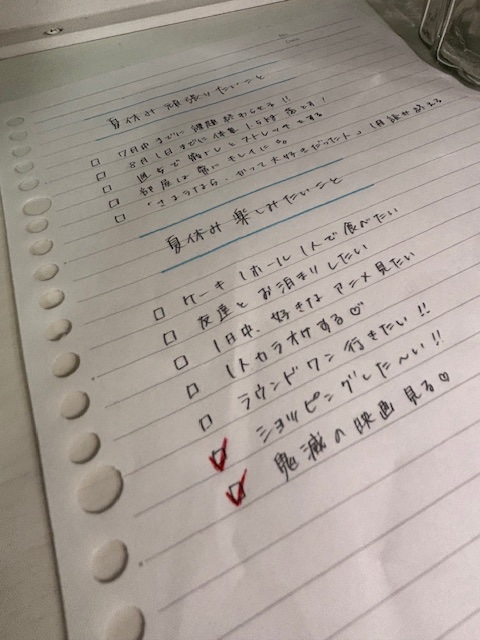 夏休み 頑張りたいこと
□ 7月中までに課題終わらせる!!
□ 8月1日までに体重1.5kg落とす!
□ 週5で筋トレとストレッチをする
□ 部屋は常にキレイに
□ 「さようなら、かつて大好きだった人」1冊読み終える
夏休み 楽しみたいこと
□ ケーキ1ホール1人で食べたい
□ 友達とお泊まりしたい
□ 1日中、好きなアニメ見たい
□ 1人カラオケする♡
□ ラウンドワン行きたい!!
☑ ショッピングした〜い!!
☑ 鬼滅の映画見る♡